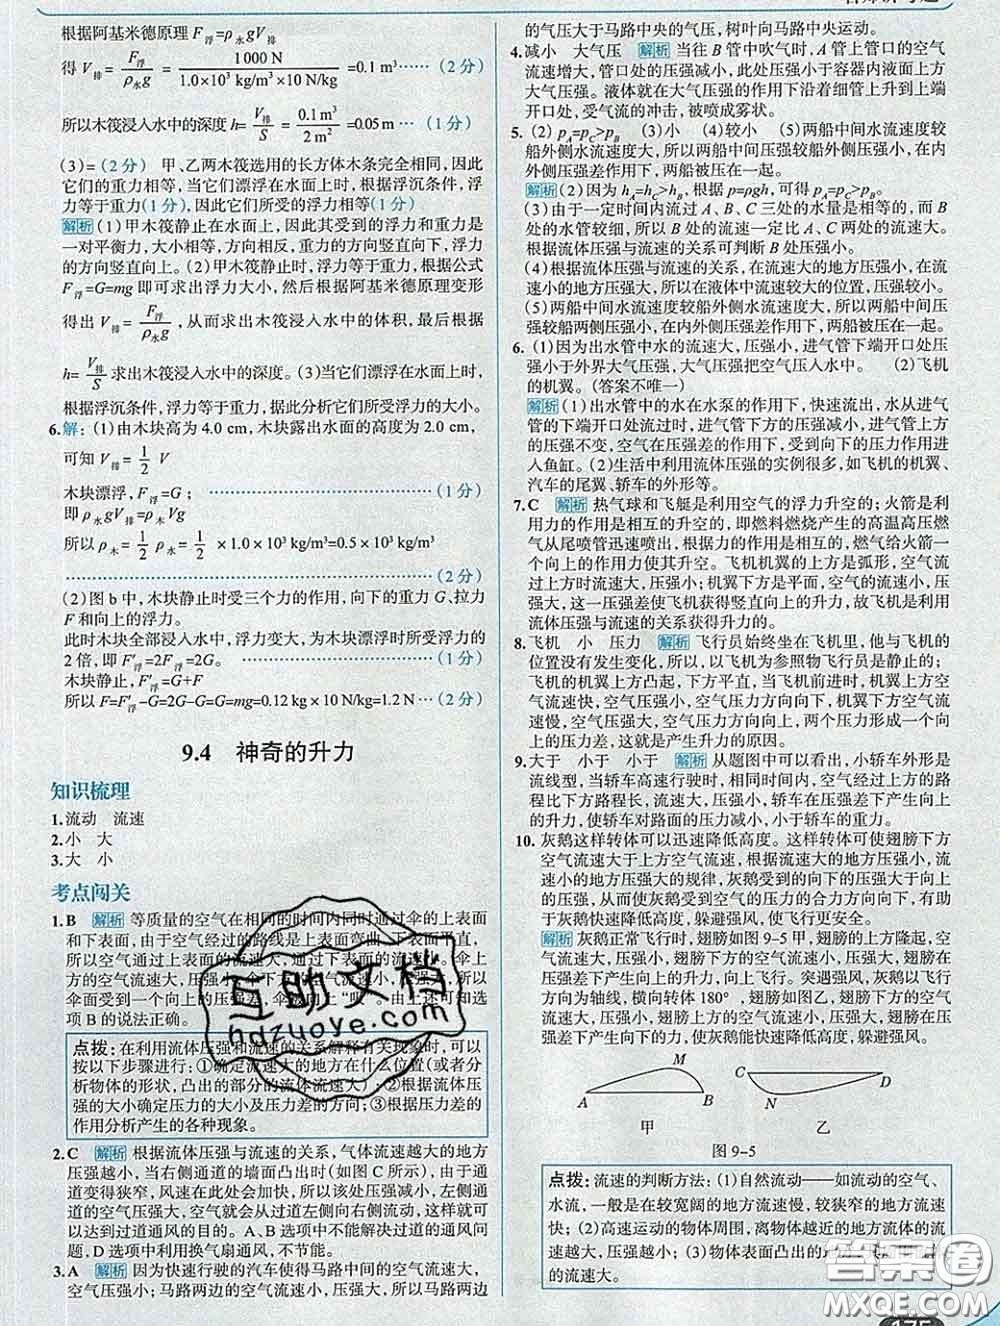 根据阿基米德原理 F浮=ρ水gV排
得 V排=F浮/ρ水g=1000 N/1.0×10³ kg/m³×10 N/kg=0.1 m³……（2分）
所以木筏浸入水中的深度 h=V排/S=0.1 m³/2 m²=0.05 m …（1分）
(3)=（2分） 甲、乙两木筏选用的长方体木条完全相同，因此
它们的重力相等，当它们漂浮在水面上时，根据浮沉条件，浮
力等于重力（1分），因此它们所受的浮力相等（1分）
解析 (1)甲木筏静止在水面上，因此其受到的浮力和重力是
一对平衡力，大小相等，方向相反，重力的方向竖直向下，浮力
的方向竖直向上。(2)甲木筏静止时，浮力等于重力，根据公式
F浮=G=mg 即可求出浮力大小，然后根据阿基米德原理变形
得出 V排=F浮/ρ水g，从而求出木筏浸入水中的体积，最后根据
h=V排/S求出木筏浸入水中的深度。(3)当它们漂浮在水面上时，
根据浮沉条件，浮力等于重力，据此分析它们所受浮力的大小。
6.解：(1)由木块高为 4.0 cm，木块露出水面的高度为 2.0 cm，
可知 V排=1/2 V
木块漂浮，F浮=G； ……（1分）
即 ρ水gV排=ρ木Vg
所以 ρ木=1/2 ρ水=1/2 ×1.0×10³ kg/m³=0.5×10³ kg/m³
……（2分）
(2)图 b 中，木块静止时受三个力的作用，向下的重力 G、拉力
F 和向上的浮力。
此时木块全部浸入水中，浮力变大，为木块漂浮时所受浮力的
2 倍，即 F′浮=2F浮=2G。 ……（1分）
木块静止，F′浮=G+F
所以 F=F′浮-G=2G-G=G=mg=0.12 kg×10 N/kg=1.2 N …（2分）
9.4 神奇的升力
知识梳理
1.流动 流速
2.小 大
3.大 小
考点闯关
1.B 解析 等质量的空气在相同的时间内同时通过伞的上表面
和下表面，由于空气经过的路线是上表面弯曲、下表面平直，
所以空气通过上表面的流速大，通过下表面的流速小，伞上
方的空气流速大，压强小，伞下方的空气流速小，压强大，所以
伞面受到一个向上的压强差，伞被向上“吸”。由上述可知选
项 B 的说法正确。
点拨：在利用流体压强和流速的关系解释有关现象时，可以
按以下步骤进行：①确定流速大的地方在什么位置（或者分
析物体的形状，凸出的部分的流体流速大）；②根据流体压
强的大小确定压力的大小及压力差的方向；③根据压力差的
作用分析产生的各种现象。
2.C 解析 根据流体压强与流速的关系，气体流速越大的地方
压强越小，当右侧通道的墙面凸出时（如图 C 所示），由于通
道变得狭窄，风速在此处会加快，所以该处压强减小，左侧通
道的压强大，空气就会从过道左侧向右侧流动，这样就可
以达到过道通风的目的。A、B 选项中不能解决过道的通风问
题，D 选项中利用换气扇通风，不节能。
3.A 解析 因为快速行驶的汽车使得马路中间的空气流速大，
空气压强小；马路两边的空气流速小，压强大，所以马路两边
的气压大于马路中央的气压，树叶向马路中央运动。
4.减小 大气压 解析 当往 B 管中吹气时，A 管上管口的空气
流速增大，管口处的压强减小，此处压强小于容器内液面上方
大气压强。液体就在大气压强的作用下沿着细管上升到上端
开口处，受气流的冲击，被喷成雾状。
5.(2) pA=pC>pB (3)小 (4)较小 (5)两船中间水流速度较
船外侧水流速度大，所以两船中间压强较船外侧压强小，在内
外侧压强差作用下，两船被压在一起。
解析 (2)因为 hA=hC>hB，根据 p=ρgh，可得 pA=pC>pB。
(3)由于一定时间内流过 A、B、C 三处的水量是相等的，而 B
处的水管较细，所以 B 处的流速一定比 A、C 两处的流速大。
根据流体压强与流速的关系可判断 B 处压强小。
(4)根据流体压强与流速的关系，在流速大的地方压强小，在流速
小的地方压强大，所以在液体中流速较大的位置，压强较小。
(5)两船中间水流速度较船外侧水流速度大，所以两船中间压
强较船两侧压强小，在内外侧压强差作用下，两船被压在一起。
6.(1)因为出水管中水的流速大，压强小，进气管下端开口处压
强小于外界大气压强，大气压强把空气压入水中。(2)飞机
的机翼。（答案不唯一）
解析 (1)出水管中的水在水泵的作用下，快速流出，水从进气
管的下端开口处流过时，进气管下方的压强减小，进气管上方
的压强不变，空气在压强差的作用下，受到向下的压力作用进
入鱼缸。(2)生活中利用流体压强的实例很多，如飞机的机翼、
汽车的尾翼、轿车的外形等。
7.C 解析 热气球和飞艇是利用空气的浮力升空的；火箭是利
用力的作用是相互的升空的，即燃料燃烧产生的高温高压燃
气从尾喷管迅速喷出，根据力的作用是相互的，燃气给火箭一
个向上的作用力使其升空。飞机机翼的上方是弧形，空气流
过上方时流速大，压强小；机翼下方是平面，空气的流速小，压
强大，这一压强差使飞机获得竖直向上的升力，故飞机是利用
流体压强与流速的关系获得升力的。
8.飞机 小 压力 解析 飞行员始终坐在飞机里，他与飞机的
位置没有发生变化，所以，以飞机为参照物飞行员是静止的；
飞机的机翼上方凸起，下方平直，当飞机前进时，机翼上方空
气流速快，空气压强小，空气压力方向向下，机翼下方空气流速
慢，空气压强大，压力方向向上，两个压力形成一个向上
的压力差，这就是产生升力的原因。
9.大于 小于 小于 解析 从题图中可以看出，小轿车外形是
流线型，当轿车高速行驶时，相同时间内，空气经过上方的路
程比下方路程长，流速大，压强小，轿车在压强差下产生向上
的升力，使轿车对路面的压力减小，小于轿车的重力。
10.灰鹅这样转体可以迅速降低高度。这样转体可使翅膀下方
空气流速大于上方空气流速，根据流速大的地方压强小，流
速小的地方压强大的规律，灰鹅受到空气向下的压力，有助
于灰鹅快速降低高度，躲避强风，使飞行更安全。
解析 灰鹅正常飞行时，翅膀如图 9-5 甲，翅膀的上方隆起，空
气流速大，压强小，下方的空气流速小，压强大，翅膀在压
强差下产生向上的升力，向上飞行。突遇强风，灰鹅以飞行
方向为轴线，横向转体 180°，翅膀如图乙，下方的空气流
速大，压强小，上方的空气流速小，压强大，翅膀在压强差下
产生向下的压力，使灰鹅能快速降低高度，躲避强风。
M A B 甲
C D N 乙
图 9-5
点拨：流速的判断方法：(1)自然流动——如流动的空气、
水流，一般是在较宽阔的地方流速慢，较狭窄的地方流速
快；(2)高速运动的物体周围，离物体越近的地方流体的流
速越大，压强越小；(3)物体表面凸出的
的流速大。
互助文档
hdzuoye.com
答案圈
MXQE.COM
175